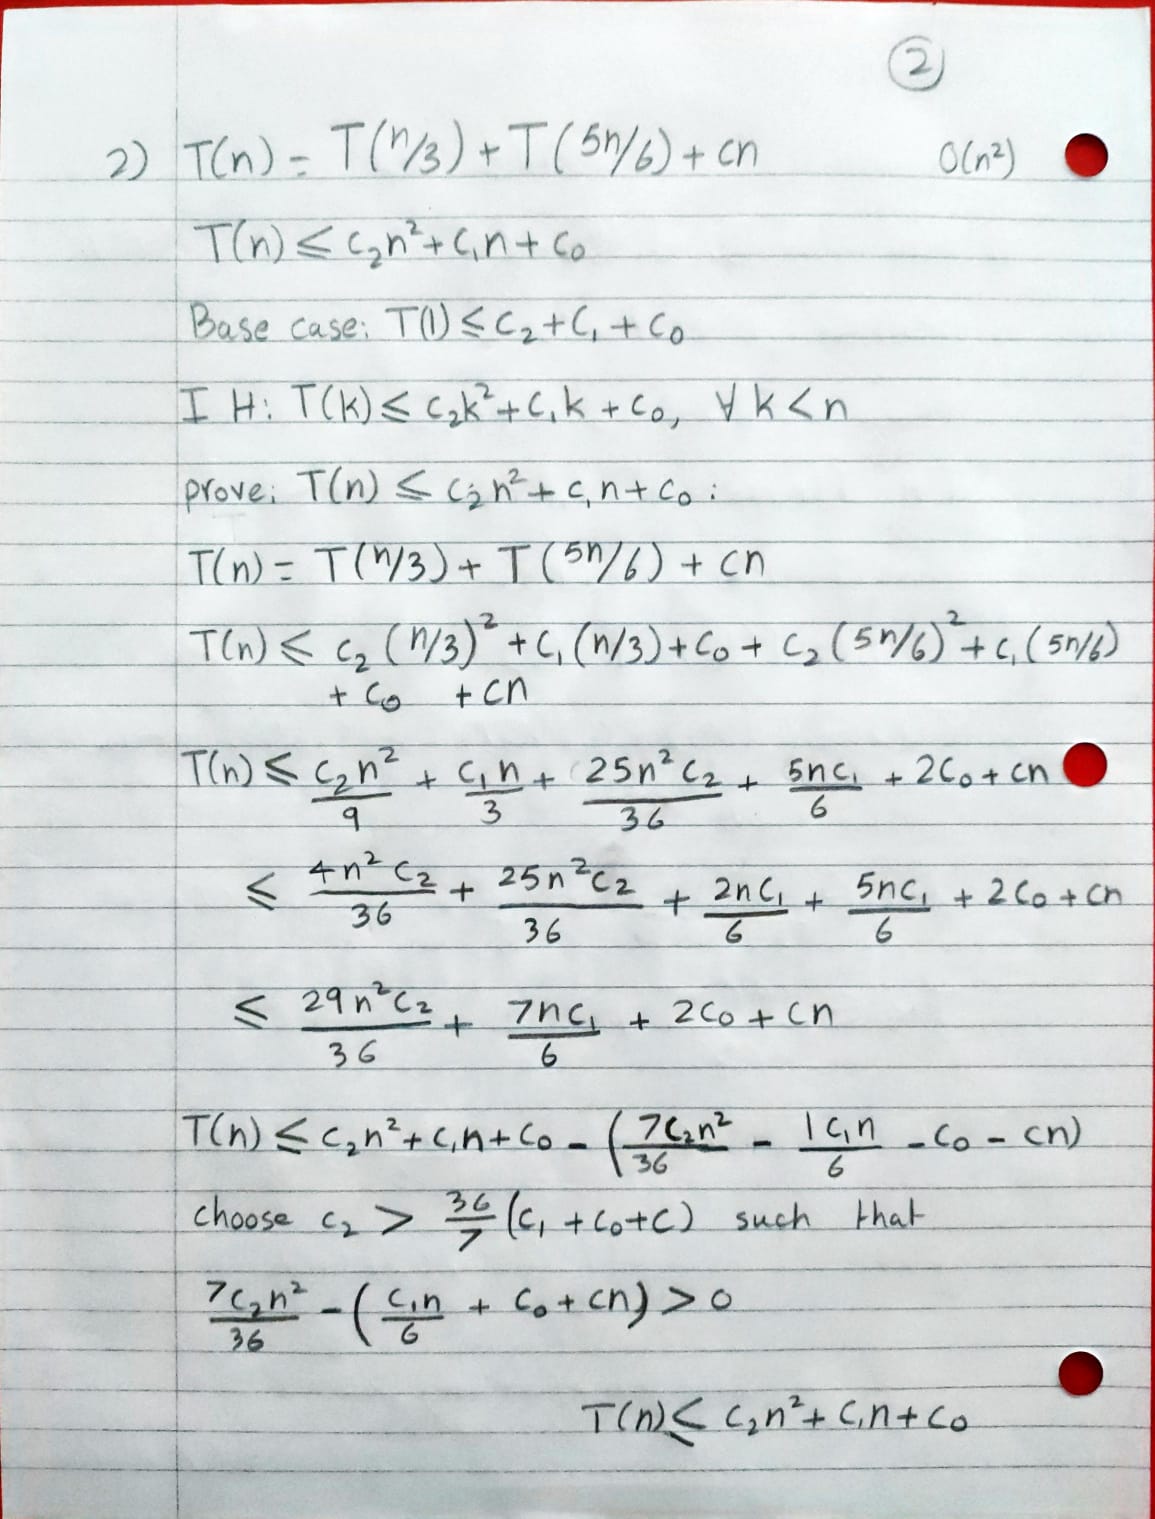 2
2) T(n) = T(n/3) + T(5n/6) + cn O(n²)
T(n) ≤ c₂n² + c₁n + c₀
Base case: T(1) ≤ c₂ + c₁ + c₀
I H: T(k) ≤ c₂k² + c₁k + c₀, ∀ k < n
prove: T(n) ≤ c₂n² + c₁n + c₀ :
T(n) = T(n/3) + T(5n/6) + cn
T(n) ≤ c₂(n/3)² + c₁(n/3) + c₀ + c₂(5n/6)² + c₁(5n/6)
+ c₀ + cn
T(n) ≤ c₂n²/9 + c₁n/3 + 25n²c₂/36 + 5nc₁/6 + 2c₀ + cn
≤ 4n²c₂/36 + 25n²c₂/36 + 2nc₁/6 + 5nc₁/6 + 2c₀ + cn
≤ 29n²c₂/36 + 7nc₁/6 + 2c₀ + cn
T(n) ≤ c₂n² + c₁n + c₀ - (7c₂n²/36 - 1c₁n/6 - c₀ - cn)
choose c₂ > 36/7 (c₁ + c₀ + c) such that
7c₂n²/36 - (c₁n/6 + c₀ + cn) > 0
T(n) ≤ c₂n² + c₁n + c₀